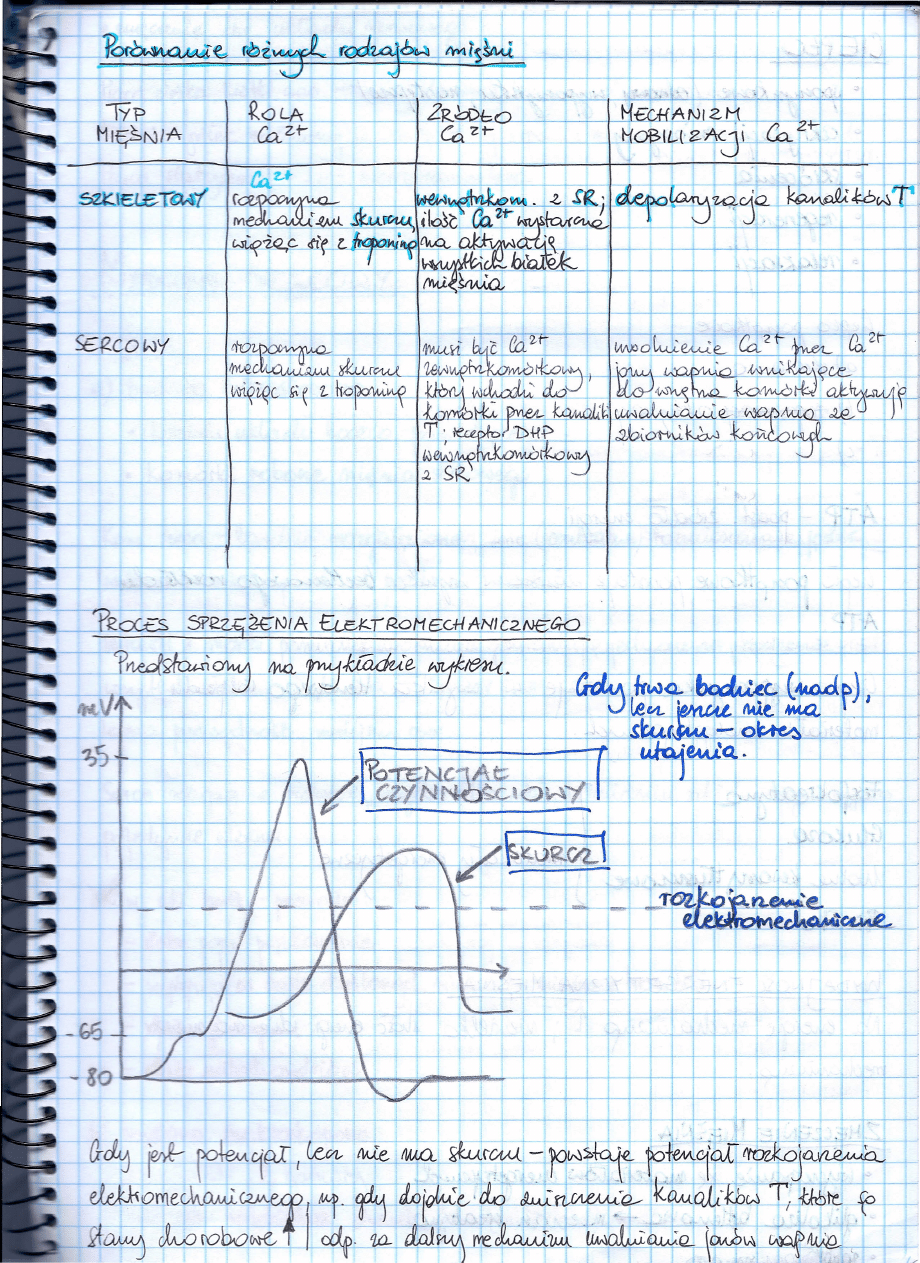 Porównanie różnych rodzajów mięśni
TYP MIĘŚNIA
ROLA Ca²⁺
ŹRÓDŁO Ca²⁺
MECHANIZM MOBILIZACJI Ca²⁺
SZKIELETOWY
Ca²⁺
rozpoczyna
mechanizm skurczu,
wiążąc się z troponiną
wewnątrzkom. z SR;
ilość Ca²⁺ wystarcza
na aktywację
wszystkich białek
mięśnia
depolaryzacja kanalików T
SERCOWY
rozpoczyna
mechanizm skurczu
wiążąc się z troponiną
musi być Ca²⁺
zewnątrzkomórkowy,
który wchodzi do
komórki przez kanaliki
T; receptor DHP
wewnątrzkomórkowy
z SR
uwolnienie Ca²⁺ przez Ca²⁺
jony wapnia wnikające
do wnętrza komórki aktywują
uwalnianie wapnia ze
zbiorników końcowych
PROCES SPRZĘŻENIA ELEKTROMECHANICZNEGO
Przedstawiony na przykładzie wykresu.
Gdy trwa bodziec (nadp),
lecz jeszcze nie ma
skurczu – okres
utajenia.
mV
35
POTENCJAŁ
CZYNNOŚCIOWY
SKURCZ
rozkojarzenie
elektromechaniczne
-65
-80
Gdy jest potencjał, lecz nie ma skurczu – powstaje potencjał rozkojarzenia
elektromechanicznego, np. gdy dojdzie do zniszczenia kanalików T, które są
stany chorobowe odp. za dalszy mechanizm uwalniania jonów wapnia